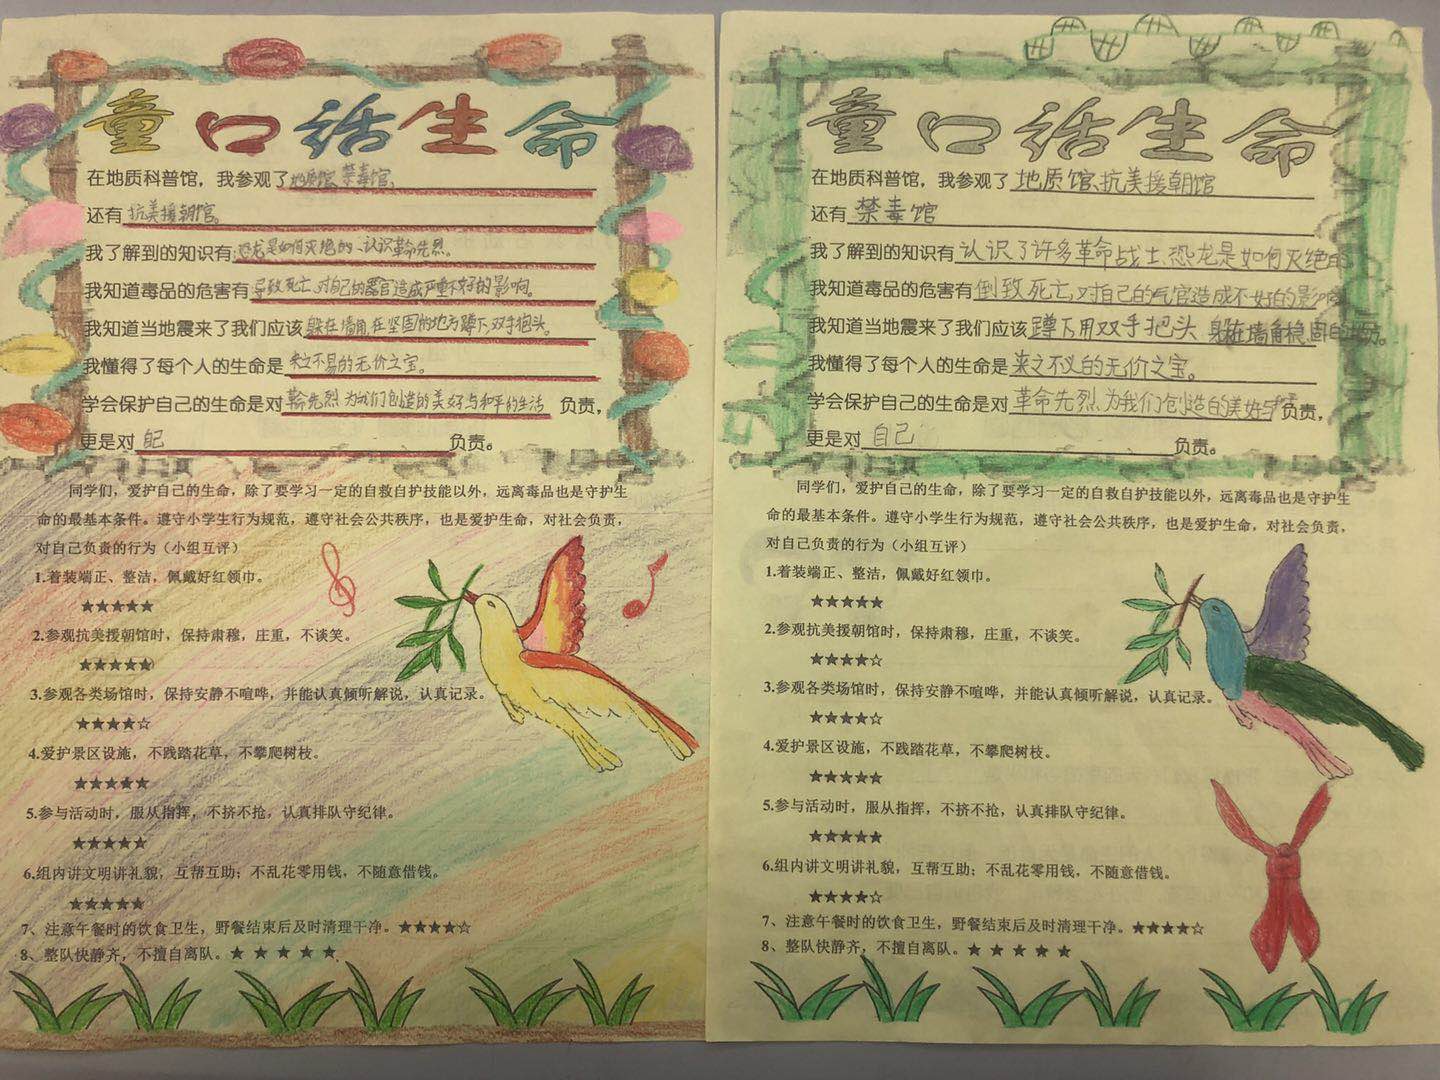 童口话生命
在地质科普馆，我参观了地质馆、禁毒馆、
还有抗美援朝馆。
我了解到的知识有恐龙是如何灭绝的、认识革命先烈。
我知道毒品的危害有导致死亡、对自己的器官造成严重不好的影响。
我知道当地震来了我们应该躲在墙角，在坚固的地方蹲下，双手抱头。
我懂得了每个人的生命是来之不易的无价之宝。
学会保护自己的生命是对革命先烈、为我们创造的美好与和平的生活 负责，
更是对自己 负责。
同学们，爱护自己的生命，除了要学习一定的自救自护技能以外，远离毒品也是守护生
命的最基本条件。遵守小学生行为规范，遵守社会公共秩序，也是爱护生命，对社会负责，
对自己负责的行为（小组互评）
1.着装端正、整洁，佩戴好红领巾。
★★★★★
2.参观抗美援朝馆时，保持肃穆，庄重，不谈笑。
★★★★★
3.参观各类场馆时，保持安静不喧哗，并能认真倾听解说，认真记录。
★★★★☆
4.爱护景区设施，不践踏花草，不攀爬树枝。
★★★★★
5.参与活动时，服从指挥，不挤不抢，认真排队守纪律。
★★★★★
6.组内讲文明讲礼貌，互帮互助；不乱花零用钱，不随意借钱。
★★★★★
7、注意午餐时的饮食卫生，野餐结束后及时清理干净。★★★★☆
8、整队快静齐，不擅自离队。★ ★ ★ ★ ★
童口话生命
在地质科普馆，我参观了地质馆、抗美援朝馆
还有禁毒馆
我了解到的知识有认识了许多革命战士、恐龙是如何灭绝的
我知道毒品的危害有倒致死亡、对自己的气官造成不好的影响
我知道当地震来了我们应该蹲下用双手把头、躲在墙角稳固的地方。
我懂得了每个人的生命是来之不义的无价之宝。
学会保护自己的生命是对革命先烈、为我们创造的美好 负责，
更是对自己 负责。
同学们，爱护自己的生命，除了要学习一定的自救自护技能以外，远离毒品也是守护生
命的最基本条件。遵守小学生行为规范，遵守社会公共秩序，也是爱护生命，对社会负责，
对自己负责的行为（小组互评）
1.着装端正、整洁，佩戴好红领巾。
★★★★★
2.参观抗美援朝馆时，保持肃穆，庄重，不谈笑。
★★★★☆
3.参观各类场馆时，保持安静不喧哗，并能认真倾听解说，认真记录。
★★★★☆
4.爱护景区设施，不践踏花草，不攀爬树枝。
★★★★★
5.参与活动时，服从指挥，不挤不抢，认真排队守纪律。
★★★★★
6.组内讲文明讲礼貌，互帮互助；不乱花零用钱，不随意借钱。
★★★★☆
7、注意午餐时的饮食卫生，野餐结束后及时清理干净。★★★★☆
8、整队快静齐，不擅自离队。★ ★ ★ ★ ★